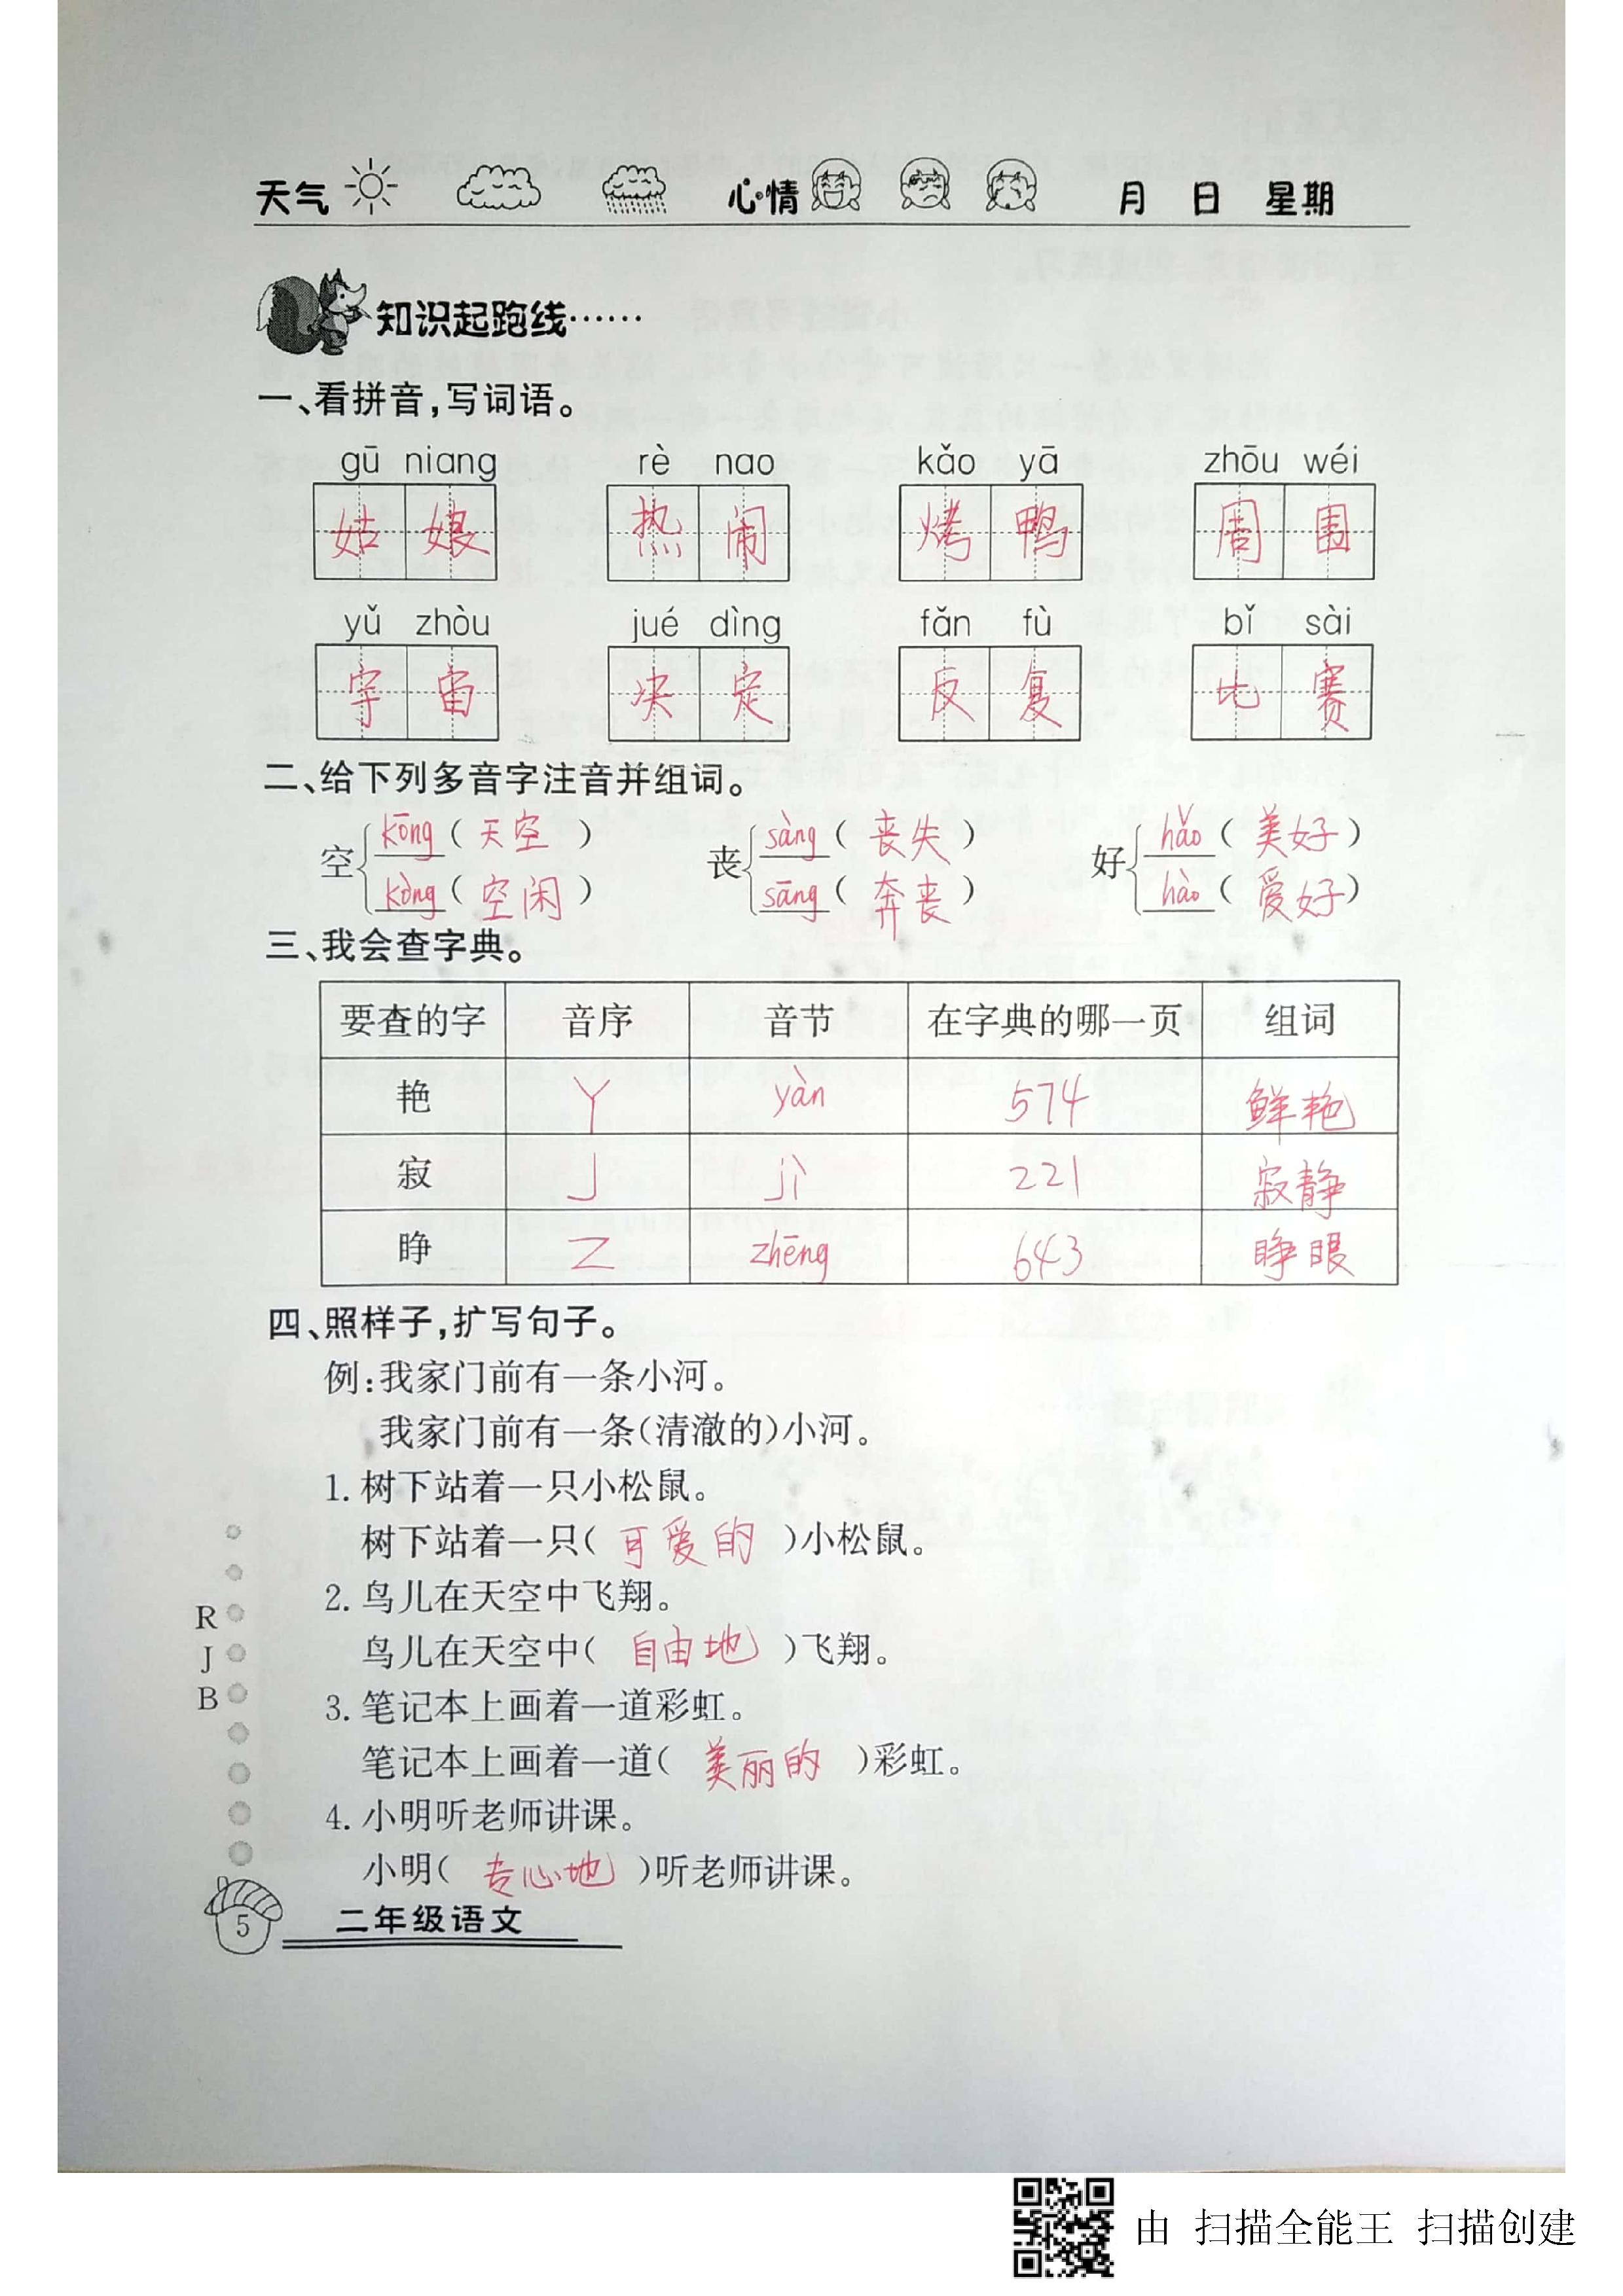 天气 心情 月 日 星期
知识起跑线……
一、看拼音,写词语。
gū niang rè nao kǎo yā zhōu wéi
姑娘 热闹 烤鸭 周围
yǔ zhòu jué dìng fǎn fù bǐ sài
宇宙 决定 反复 比赛
二、给下列多音字注音并组词。
空 kōng(天空) 丧 sàng(丧失) 好 hǎo(美好)
kòng(空闲) sāng(奔丧) hào(爱好)
三、我会查字典。
要查的字 音序 音节 在字典的哪一页 组词
艳 Y yàn 574 鲜艳
寂 J jì 221 寂静
睁 Z zhēng 643 睁眼
四、照样子,扩写句子。
例:我家门前有一条小河。
我家门前有一条(清澈的)小河。
1. 树下站着一只小松鼠。
树下站着一只(可爱的)小松鼠。
2. 鸟儿在天空中飞翔。
鸟儿在天空中(自由地)飞翔。
3. 笔记本上画着一道彩虹。
笔记本上画着一道(美丽的)彩虹。
4. 小明听老师讲课。
小明(专心地)听老师讲课。
R
J
B
5 二年级语文
由 扫描全能王 扫描创建